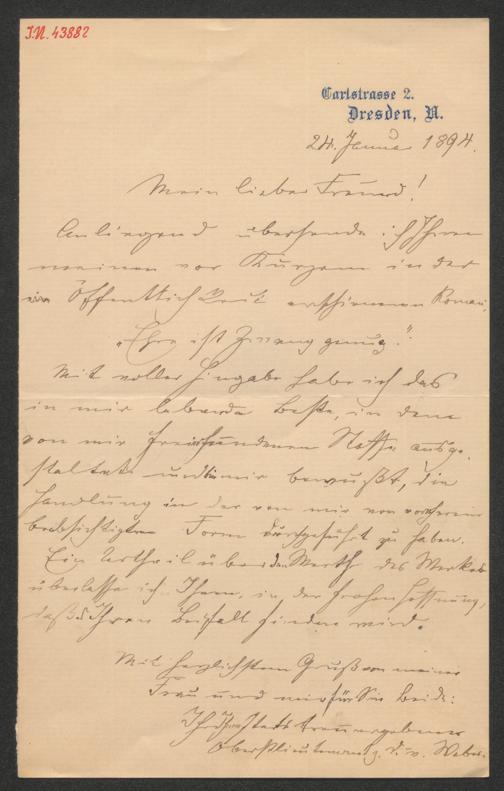 I.N. 43882
Carlstrasse 2.
Dresden, N.
24. Januar 1894.
Mein lieber Freund!
Anliegend übersende ich Ihnen
meinen vor Kurzem in der
Öffentlichkeit erschienenen Roman,
„Ehre ist Zwang genug."
Mit voller Hingabe habe ich das
in mir lebende Beste, in dem
von mir frei erfundenen Stoffe ausge-
staltet und bin mir bewußt, die
Handlung in der von mir von vornherein
beabsichtigten Form durchgeführt zu haben.
Ein Urtheil über den Werth des Werkes
überlasse ich Ihnen, in der frohen Hoffnung,
daß es Ihren Beifall finden wird.
Mit herzlichstem Gruß von meiner
Frau und mir für Sie beide:
Ihr Ihnen stets treu ergebener
Oberstlieutenant z. D. v. Weber.